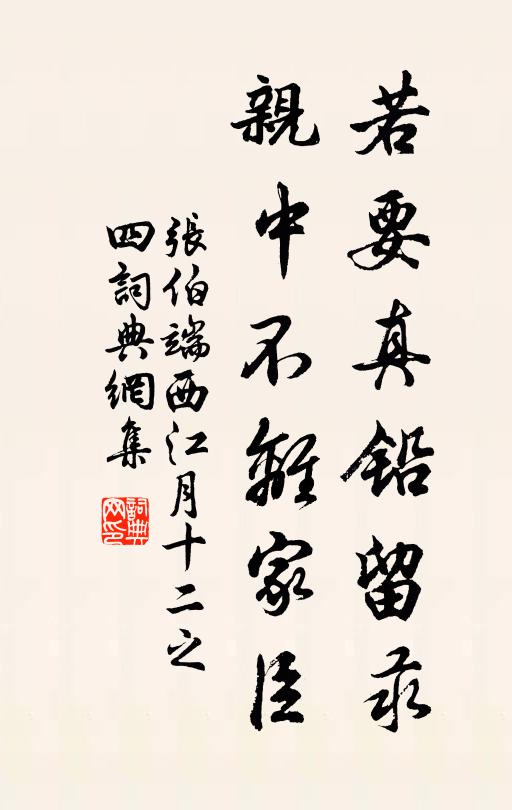 若要真鉛留汞
親中不離家臣
張伯端西江月十二之
四詞典網集
詞典
网印